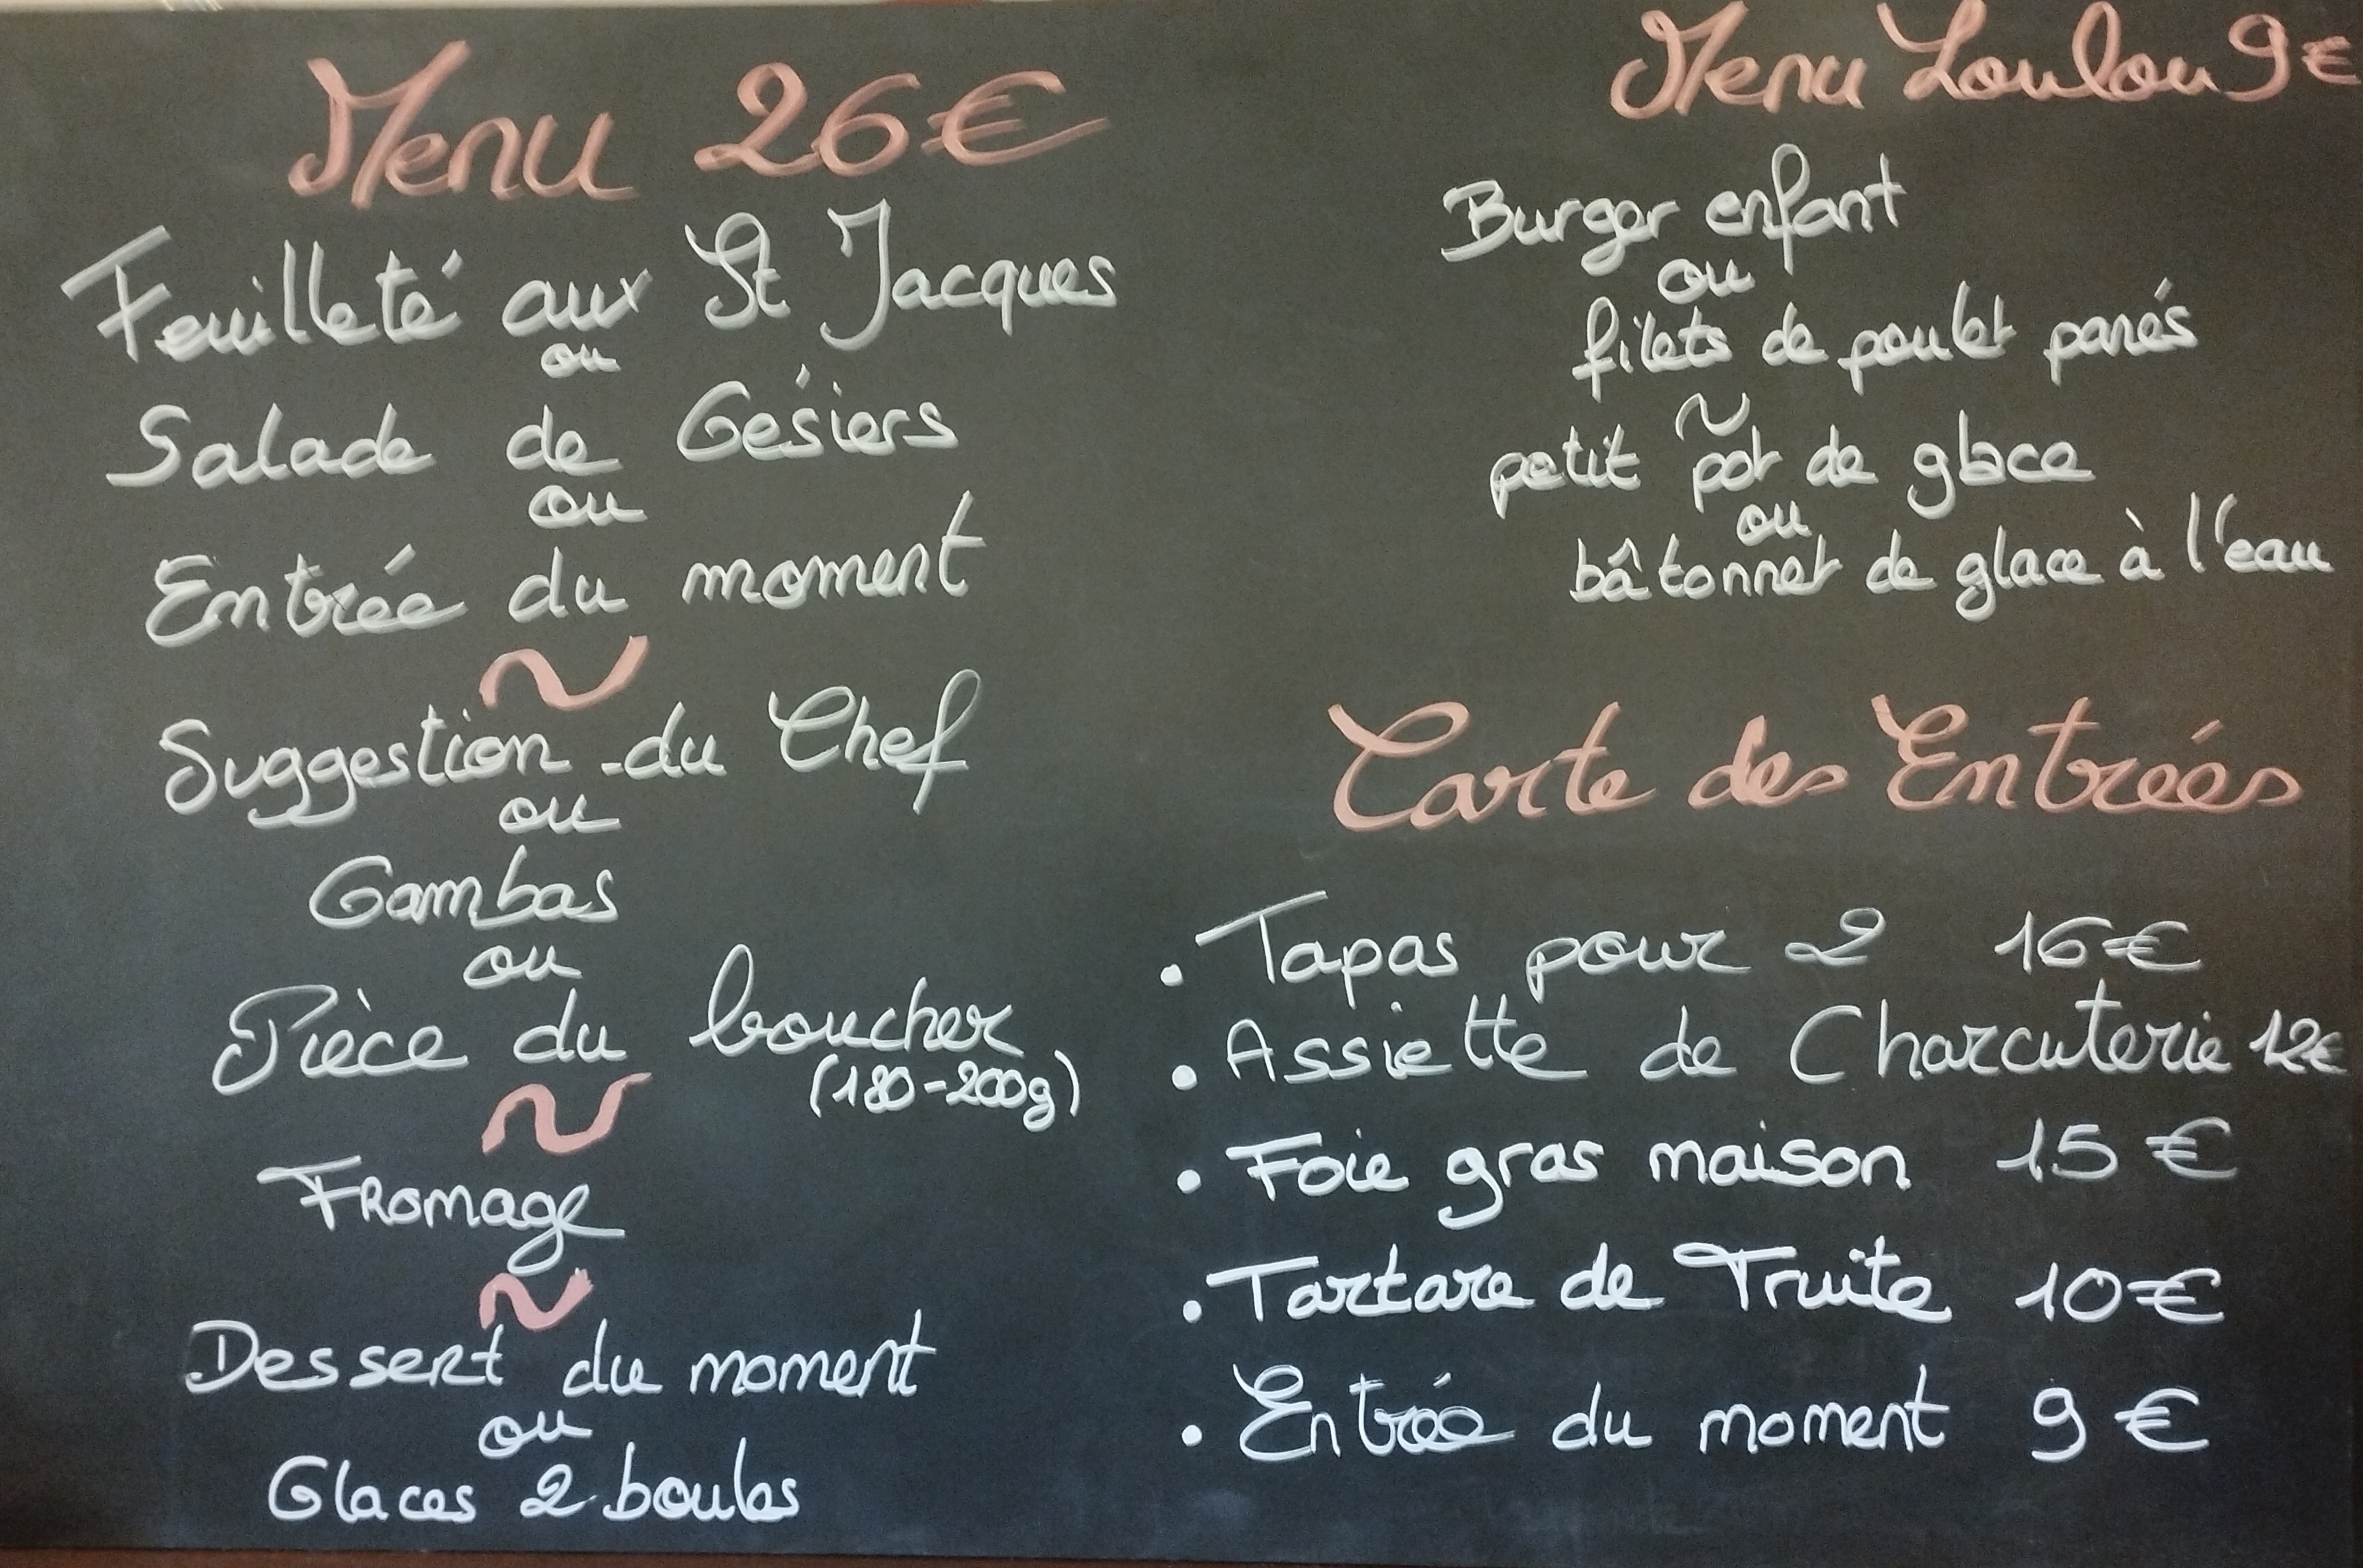 Menu 26€
Feuilleté aux St Jacques
ou
Salade de Gésiers
ou
Entrée du moment
~
Suggestion du Chef
ou
Gambas
ou
Pièce du boucher
(180-200g)
~
Fromage
~
Dessert du moment
ou
Glaces 2 boules
Menu Loulou 9€
Burger enfant
ou
filets de poulet panés
~
petit pot de glace
ou
bâtonnet de glace à l'eau
Carte des Entrées
• Tapas pour 2 16€
• Assiette de Charcuterie 12€
• Foie gras maison 15€
• Tartare de Truite 10€
• Entrée du moment 9€